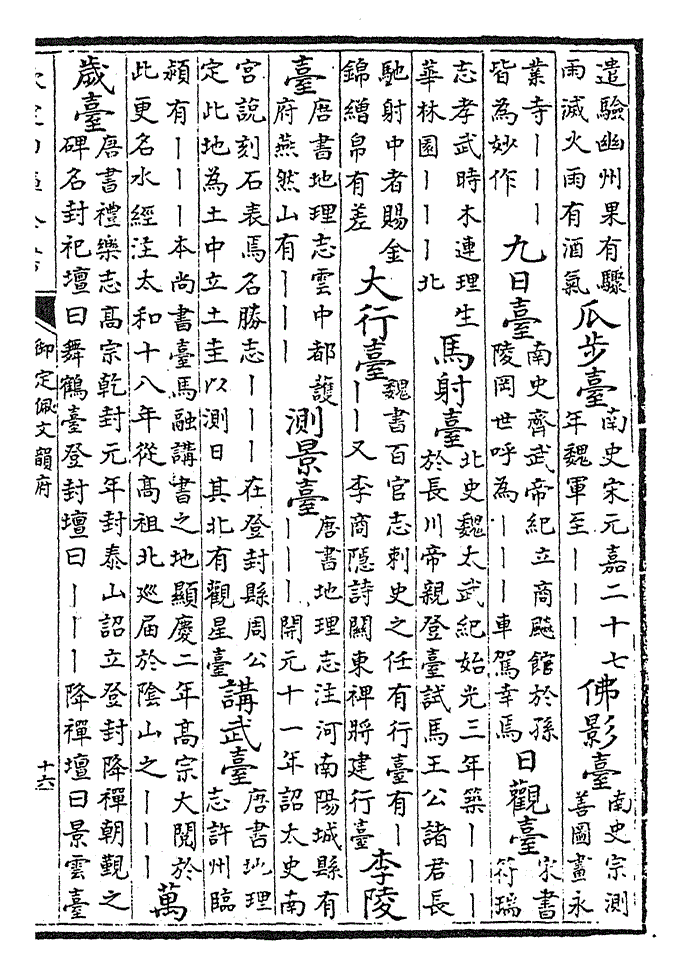 遣驗幽州果有驟雨滅火雨有酒氣 瓜步臺 南史宋元嘉二十七年魏軍至｜｜｜ 佛影臺 南史宗測善圖畫永
業寺｜｜｜皆為妙作 九日臺 南史齊武帝紀立商飈館於孫陵岡世呼為｜｜｜車駕幸焉 日觀臺 宋書符瑞
志孝武時木連理生華林園｜｜｜北 馬射臺 北史魏太武紀始光三年築｜｜｜於長川帝親登臺試馬王公諸君長
馳射中者賜金錦繒帛有差 大行臺 魏書百官志刺史之任有行臺有｜｜｜又李商隱詩關東裨將建行臺 李陵
臺 唐書地理志雲中都護府燕然山有｜｜｜ 測景臺 唐書地理志注河南陽城縣有｜｜｜開元十一年詔太史南
宮說刻石表焉名勝志｜｜｜在登封縣周公定此地為土中立土圭以測日其北有觀星臺 講武臺 唐書地理志許州臨
潁有｜｜｜本尚書臺馬融講書之地顯慶二年高宗大閱於此更名水經注太和十八年從高祖北巡届於陰山之｜｜｜ 萬
歲臺 唐書禮樂志高宗乾封元年封泰山詔立登封降禪朝覲之碑名封祀壇曰舞鶴臺登封壇曰｜｜｜降禪壇曰景雲臺
御定佩文韻府
十六